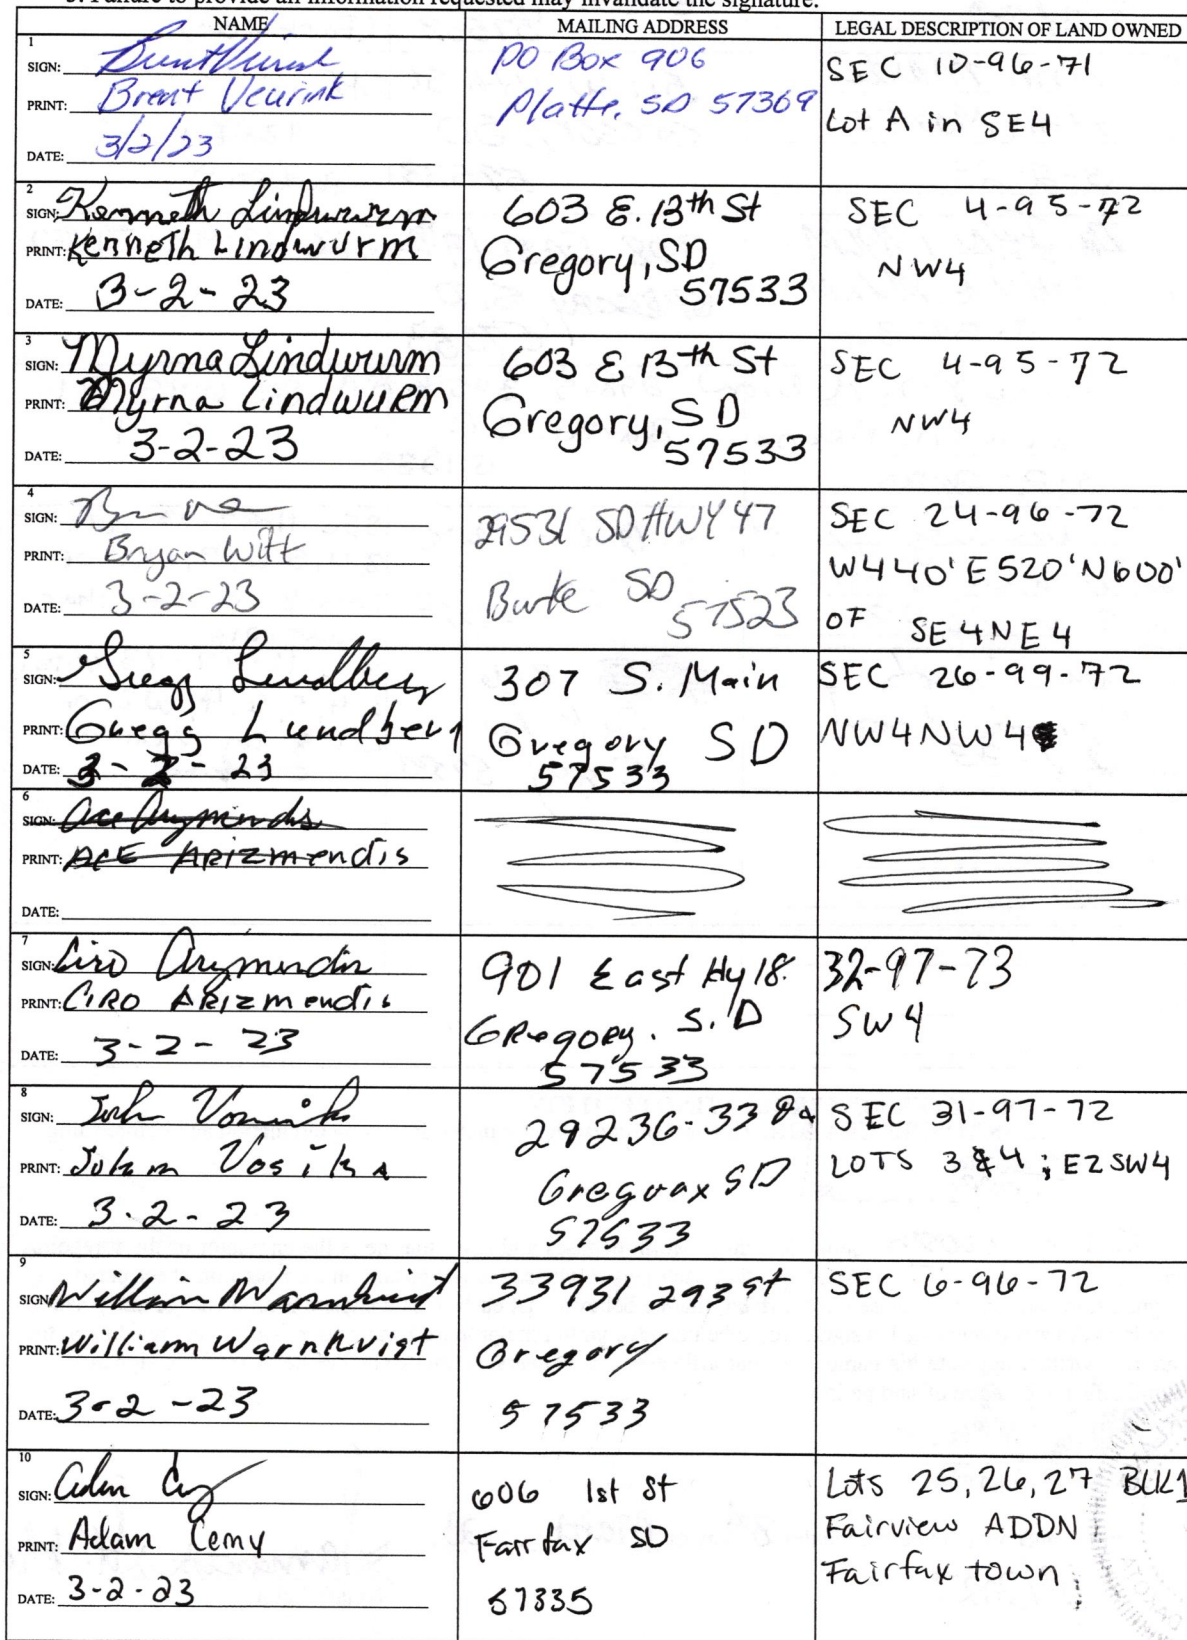 3. Failure to provide all information requested may invalidate the signature.
NAME MAILING ADDRESS LEGAL DESCRIPTION OF LAND OWNED
1
SIGN: Brent Veurink
PRINT: Brent Veurink
DATE: 3/2/23
PO Box 906
Platte, SD 57369
SEC 10-96-71
Lot A in SE4
2
SIGN: Kenneth Lindwurm
PRINT: Kenneth Lindwurm
DATE: 3-2-23
603 E. 13th St
Gregory, SD
57533
SEC 4-95-72
NW4
3
SIGN: Myrna Lindwurm
PRINT: Myrna Lindwurm
DATE: 3-2-23
603 E 13th St
Gregory, SD
57533
SEC 4-95-72
NW4
4
SIGN:
PRINT: Bryan Witt
DATE: 3-2-23
29531 SD HWY 47
Burke SD
57523
SEC 24-96-72
W440' E520' N600'
OF SE4NE4
5
SIGN: Gregg Lundberg
PRINT: Gregg Lundberg
DATE: 3-2-23
307 S. Main
Gregory SD
57533
SEC 26-99-72
NW4NW4
6
SIGN: Ace Arizmendis
PRINT: ACE ARIZMENDIS
DATE:
7
SIGN: Ciro Arizmendis
PRINT: CIRO ARIZMENDIS
DATE: 3-2-23
901 East Hy 18.
GREGORY. S.D
57533
32-97-73
SW4
8
SIGN: John Vosika
PRINT: John Vosika
DATE: 3.2-23
29236-338
SD
57533
SEC 31-97-72
LOTS 3 & 4; E2SW4
9
SIGN: William Warnkvist
PRINT: William Warnkvist
DATE: 3-2-23
33931 293 st
Gregory
57533
SEC 6-96-72
10
SIGN:
PRINT: Adam Cerny
DATE: 3-2-23
606 1st St
Fairfax SD
57335
Lots 25, 26, 27 BLK1
Fairview ADDN
Fairfax town